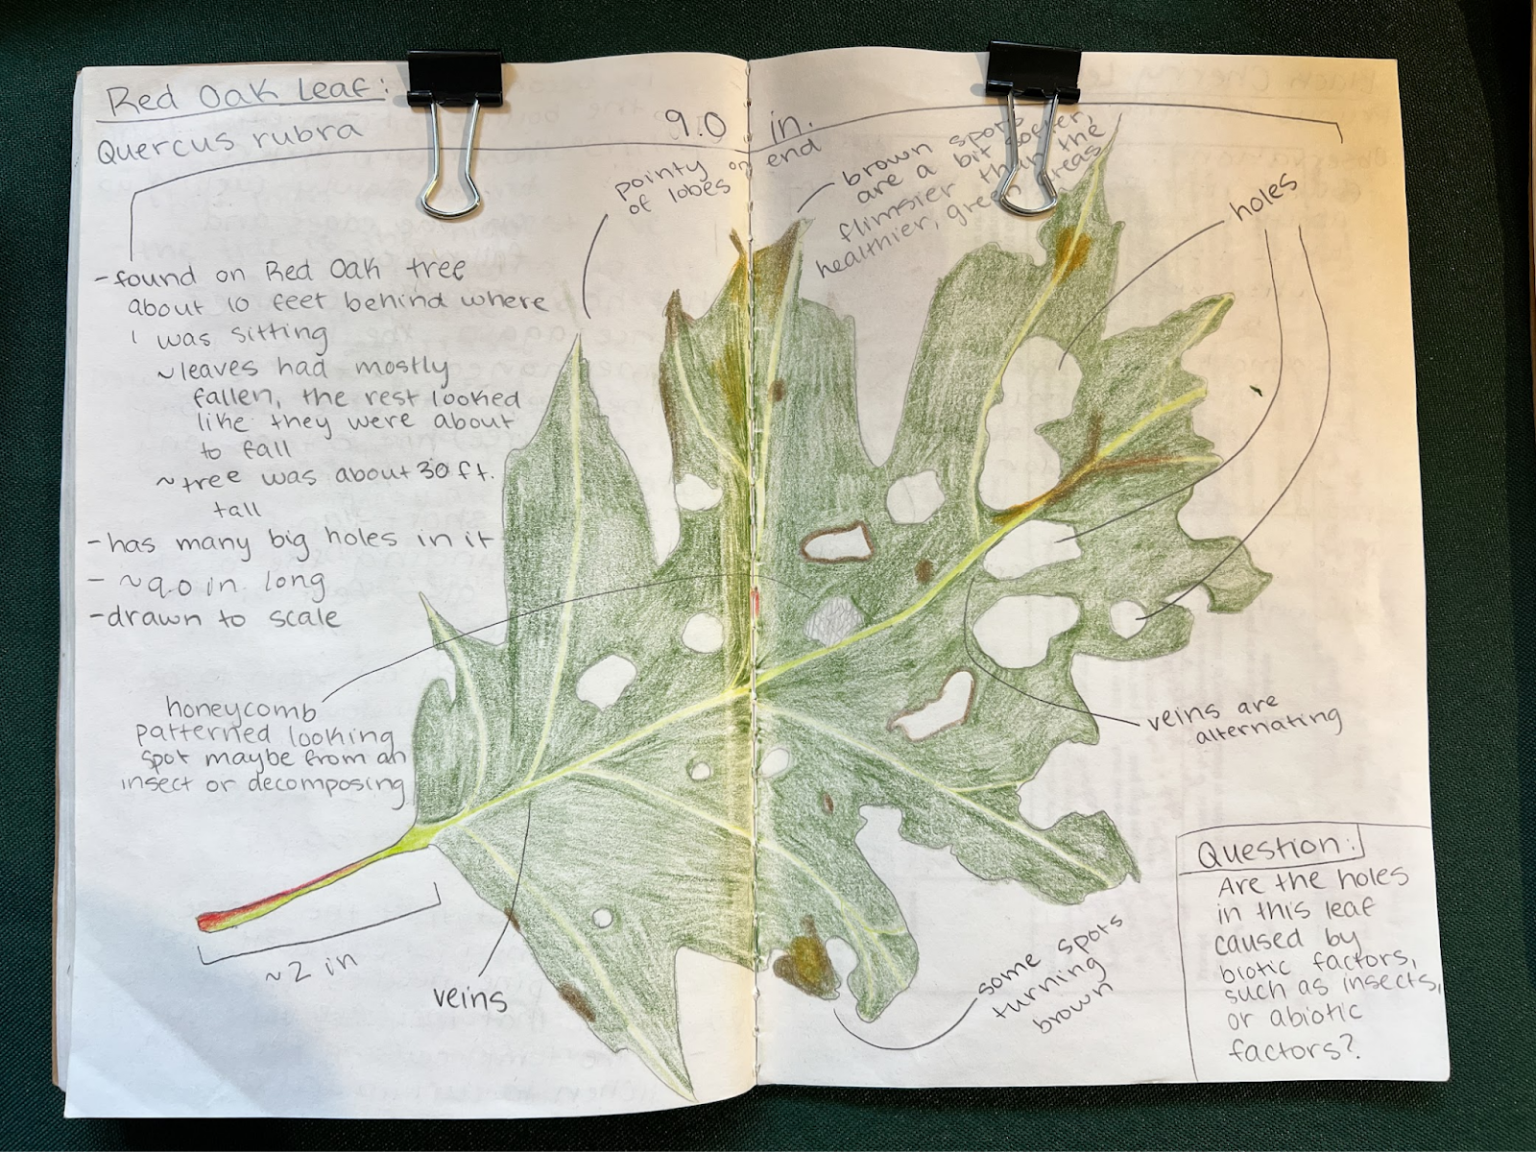 Red Oak Leaf:
Quercus rubra
9.0 in.
- found on Red Oak tree
about 10 feet behind where
I was sitting
~ leaves had mostly
fallen, the rest looked
like they were about
to fall
~ tree was about 30 ft.
tall
- has many big holes in it
- ~9.0 in. long
- drawn to scale
pointy on end
of lobes
brown spots
are a bit softer,
flimsier than the
healthier, green areas
holes
honeycomb
patterned looking
spot maybe from an
insect or decomposing
veins are
alternating
~2 in
veins
some spots
turning
brown
Question:
Are the holes
in this leaf
caused by
biotic factors,
such as insects,
or abiotic
factors?